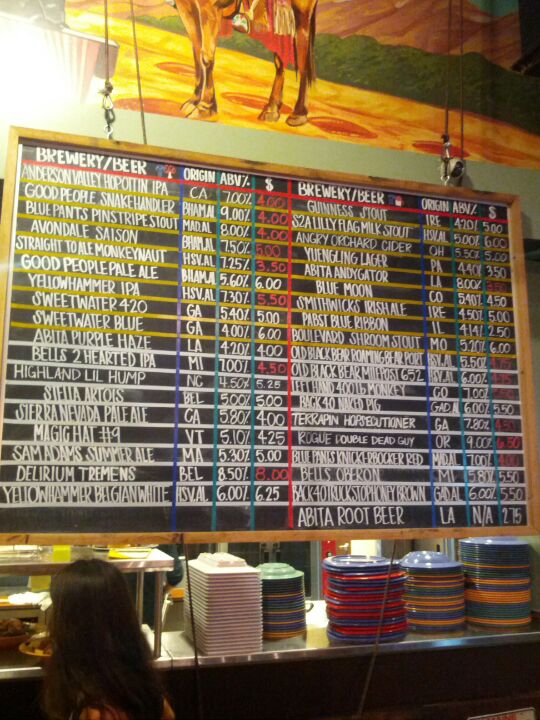 BREWERY/BEER ORIGIN ABV% $
ANDERSON VALLEY HOPOTTIN IPA CA 7.00% 4.00
GOOD PEOPLE SNAKEHANDLER BHAM,AL 9.00% 4.00
BLUE PANTS PINSTRIPE STOUT MAD,AL 8.00% 4.00
AVONDALE SAISON BHM,AL 7.50% 5.00
STRAIGHT TO ALE MONKEYNAUT HSV,AL 7.25% 3.50
GOOD PEOPLE PALE ALE BHAM,AL 5.60% 6.00
YELLOWHAMMER IPA HSV,AL 7.30% 5.50
SWEETWATER 420 GA 5.40% 5.00
SWEETWATER BLUE GA 4.00% 6.00
ABITA PURPLE HAZE LA 4.20% 4.00
BELLS 2 HEARTED IPA MI 7.00% 4.50
HIGHLAND LIL HUMP NC 4.50% 5.25
STELLA ARTOIS BEL 5.00% 5.00
SIERRA NEVADA PALE ALE CA 5.80% 4.00
MAGIC HAT #9 VT 5.10% 4.25
SAM ADAMS SUMMER ALE MA 5.30% 5.00
DELIRIUM TREMENS BEL 8.50% 8.00
YELLOWHAMMER BELGIAN WHITE HSV,AL 6.00% 6.25
BREWERY/BEER ORIGIN ABV% $
GUINNESS STOUT IRE 4.20% 5.00
S2A LILLY FLAG MILK STOUT HSV,AL 5.00% 6.00
ANGRY ORCHARD CIDER OH 5.50% 5.00
YUENGLING LAGER PA 4.40% 3.50
ABITA ANDYGATOR LA 8.00%
BLUE MOON CO 5.40% 4.50
SMITHWICKS IRISH ALE IRE 4.50% 5.00
PABST BLUE RIBBON IL 4.74% 2.50
BOULEVARD SHROOM STOUT MO 5.20% 6.00
OLD BLACK BEAR ROAMING BEAR PORT HSV,AL 5.50%
OLD BLACK BEAR MILEPOST 652 HSV,AL 6.00%
LEFT HAND 400 LB MONKEY CO 7.00%
BACK 40 NAKED PIG GAD,AL 6.00% 5.50
TERRAPIN HOPSECUTIONER GA 7.80%
ROGUE DOUBLE DEAD GUY OR 9.00% 6.50
BLUE PANTS KNICKERBOCKER RED MAD,AL 7.00%
BELLS OBERON MI 5.80% 5.50
BACK 40 TRUCK STOP HONEY BROWN GAD,AL 6.00% 5.50
ABITA ROOT BEER LA N/A 2.75